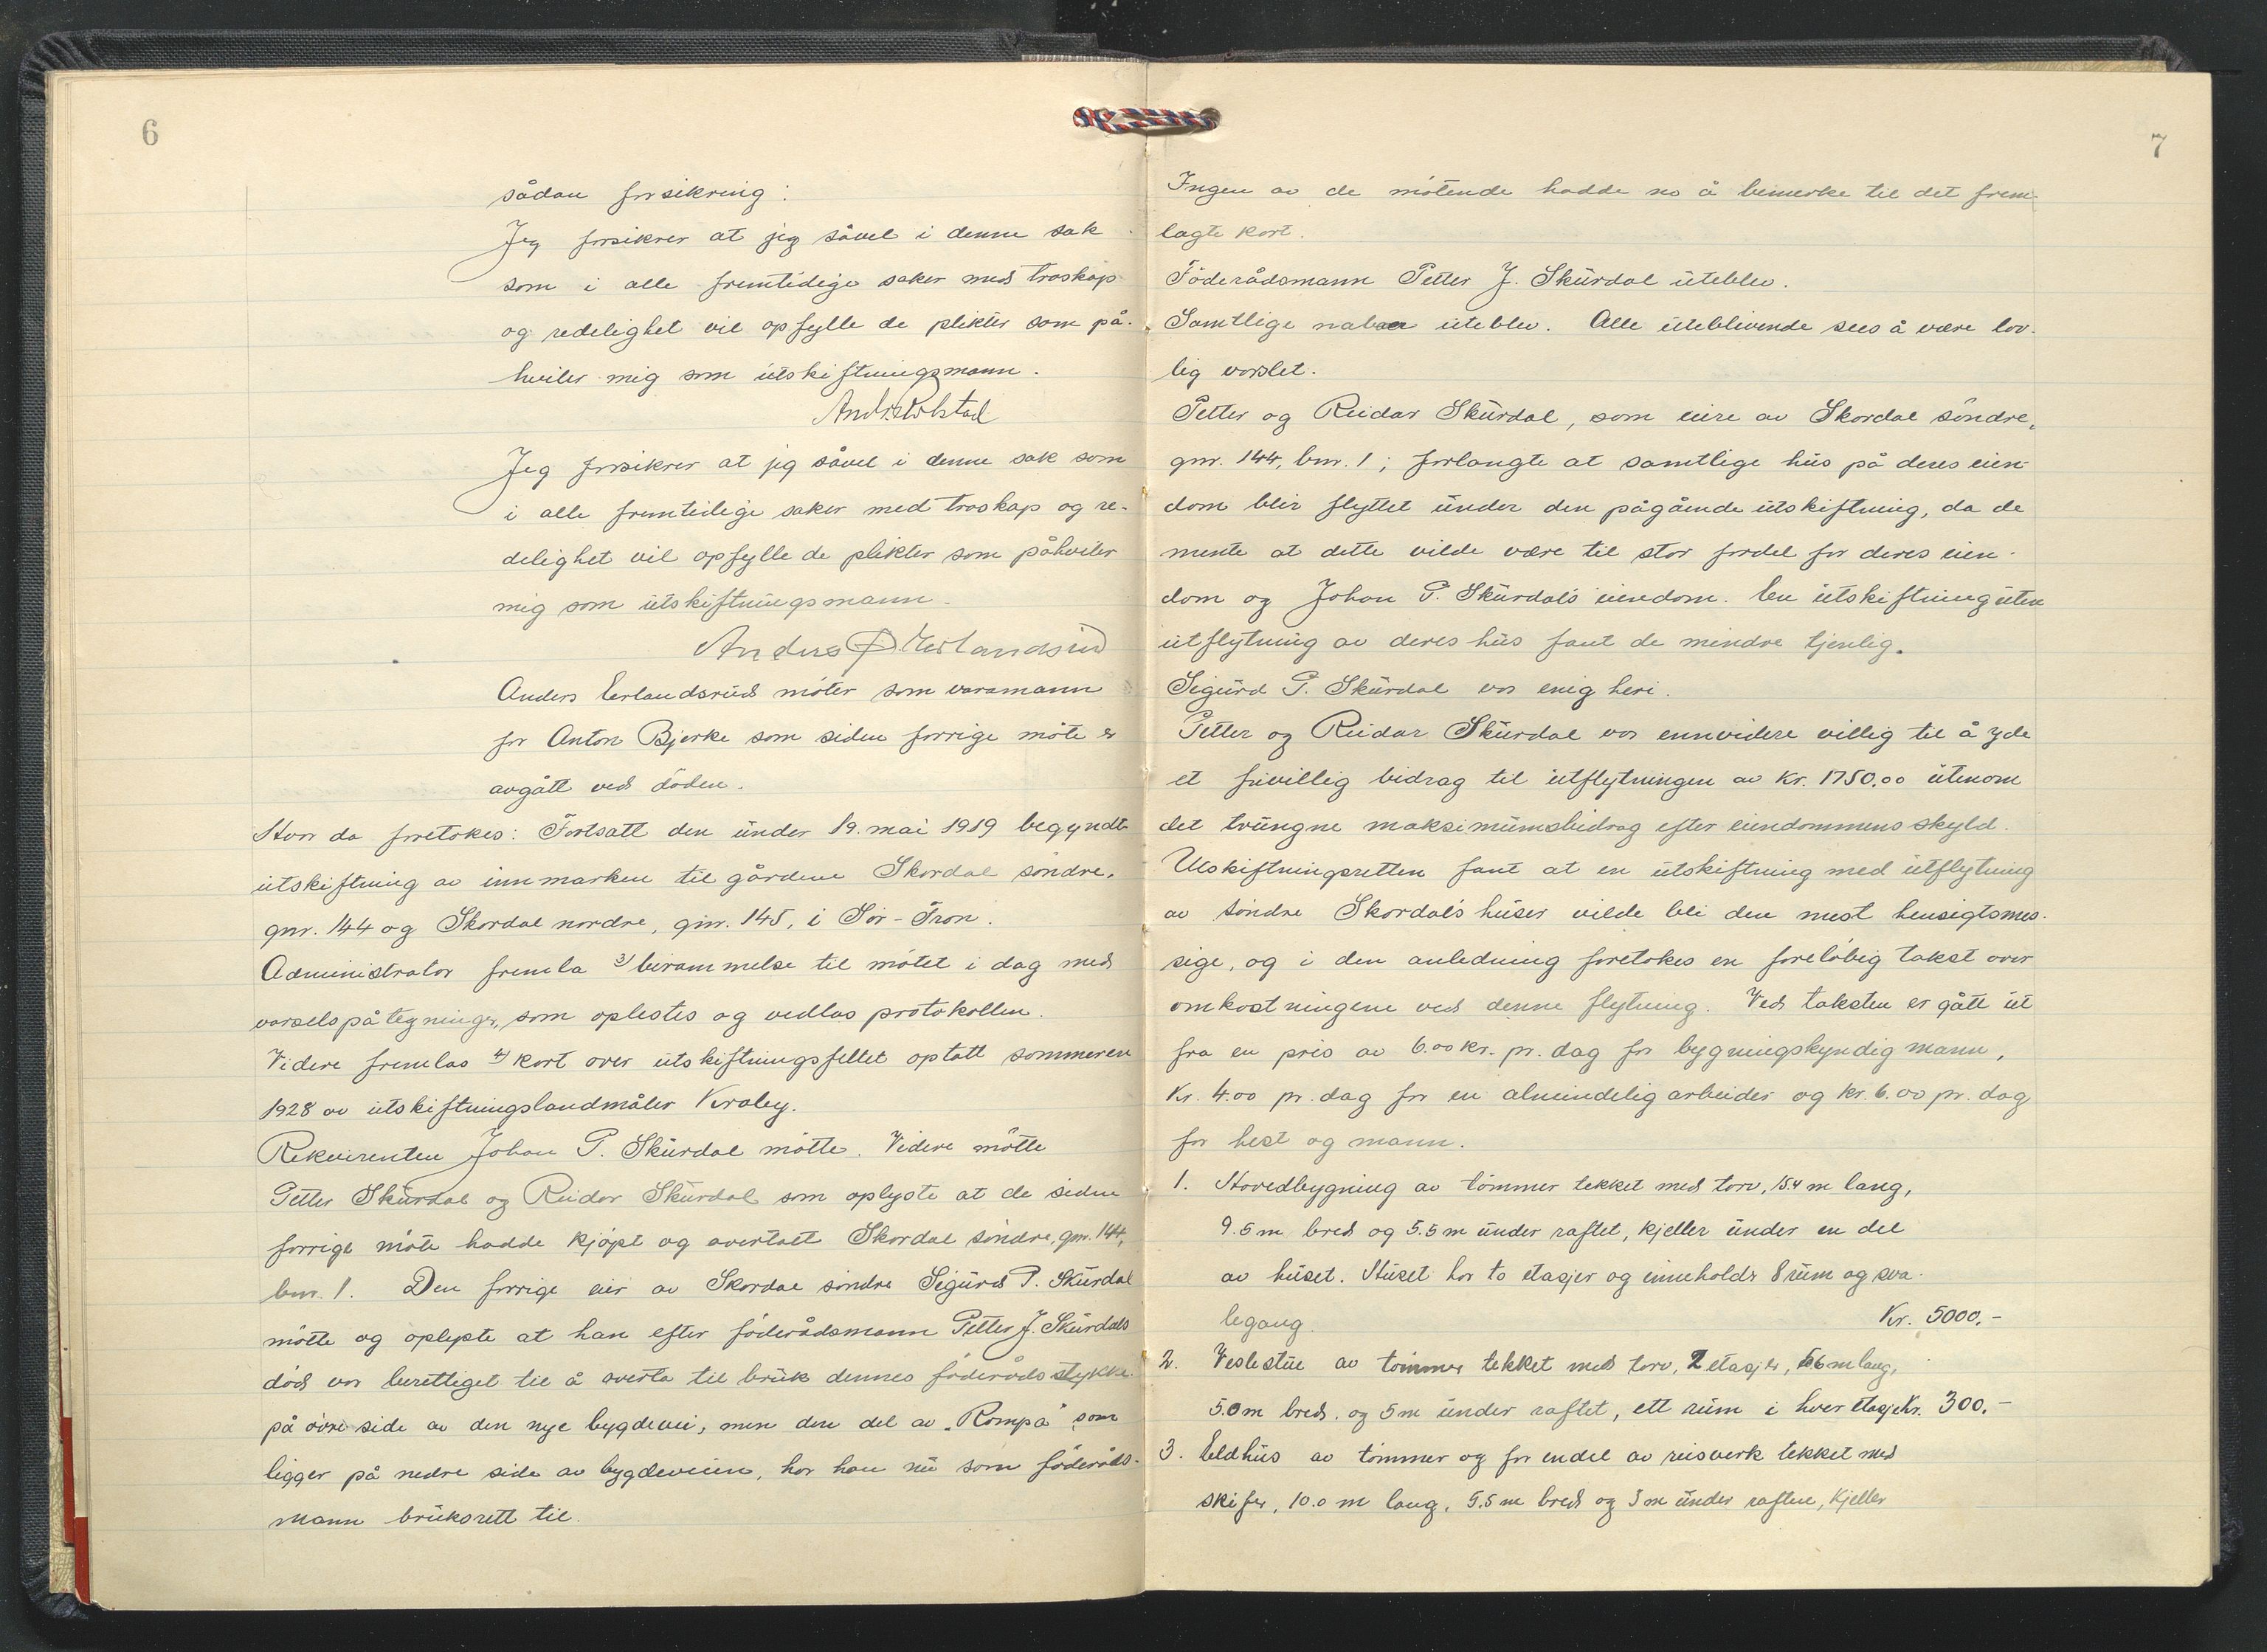 6
sådan forsikring:
Jeg forsikrer at jeg såvel i denne sak
som i alle fremtidige saker med troskap
og redelighet vil opfylle de plikter som på-
hviler mig som utskiftningsmann.
Jeg forsikrer at jeg såvel i denne sak som
i alle fremtidige saker med troskap og re-
delighet vil opfylle de plikter som påhviler
mig som utskiftningsmann.
Anders Ø. Erlandsrud
Anders Erlandsrud møter som varamann
for Anton Bjerke som siden forrige møte er
avgått ved døden.
Hvor da foretokes: Fortsatt den under 19. mai 1919 begyndte
utskiftning av innmarken til gårdene Skordal søndre,
gnr. 144 og Skordal nordre, gnr. 145, i Sør-Fron.
Administrator fremla 3) berammelse til møtet i dag med
varselspåtegninger, som oplestes og vedlas protokollen.
Videre fremlas 4) kort over utskiftningsfeltet optatt sommeren
1928 av utskiftningslandmåler Kraby.
Rekvirenten Johan P. Skurdal møtte. Videre møtte
Petter Skurdal og Reidar Skurdal som oplyste at de siden
forrige møte hadde kjøpt og overtatt Skordal søndre, gnr. 144,
bnr. 1. Den forrige eier av Skordal søndre Sigurd P. Skurdal
møtte og oplyste at han efter føderådsmann Petter J. Skurdals
død var berettiget til å overta til bruk dennes føderådsstykke
på øvre side av den nye bygdevei, men den del av „Rompa" som
ligger på nedre side av bygdeveien, har han nu som føderåds-
mann bruksrett til.
7
Ingen av de møtende hadde no å bemerke til det frem-
lagte kort.
Føderådsmann Petter J. Skurdal uteblev.
Samtlige naboer uteblev. Alle uteblivende sees å være lov-
lig varslet.
Petter og Reidar Skurdal, som eiere av Skordal søndre,
gnr. 144, bnr. 1; forlangte at samtlige hus på deres eien-
dom blir flyttet under den pågående utskiftning, da de
mente at dette vilde være til stor fordel for deres eien-
dom og Johan P. Skurdal's eiendom. En utskiftning uten
utflytning av deres hus fant de mindre tjenlig.
Sigurd P. Skurdal var enig heri.
Petter og Reidar Skurdal var ennvidere villig til å yde
et frivillig bidrag til utflytningen av kr. 1750.00 utenom
det tvungne maksimumsbidrag efter eiendommens skyld.
Utskiftningsretten fant at en utskiftning med utflytning
av søndre Skordal's huser vilde bli den mest hensigtsmes-
sige, og i den anledning foretokes en foreløbig takst over
omkostningene ved denne flytning. Ved taksten er gått ut
fra en pris av 6.00 kr. pr. dag for bygningskyndig mann,
kr. 4.00 pr. dag for en almindelig arbeider og kr. 6.00 pr. dag
for hest og mann.
1. Hovedbygning av tømmer tekket med torv, 15.4 m lang,
9.5 m bred og 5.5 m under raftet, kjeller under en del
av huset. Huset har to etasjer og inneholder 8 rum og sva-
legang. Kr. 5000.-
2. Veslestue av tømmer tekket med torv, 2 etasjer, 5.6 m lang,
5.0 m bred, og 5 m under raftet, ett rum i hver etasje Kr. 300.-
3. Eldhus av tømmer og for endel av reisverk tekket med
skifer, 10.0 m lang, 5.5 m bred og 3 m under raftene, kjeller